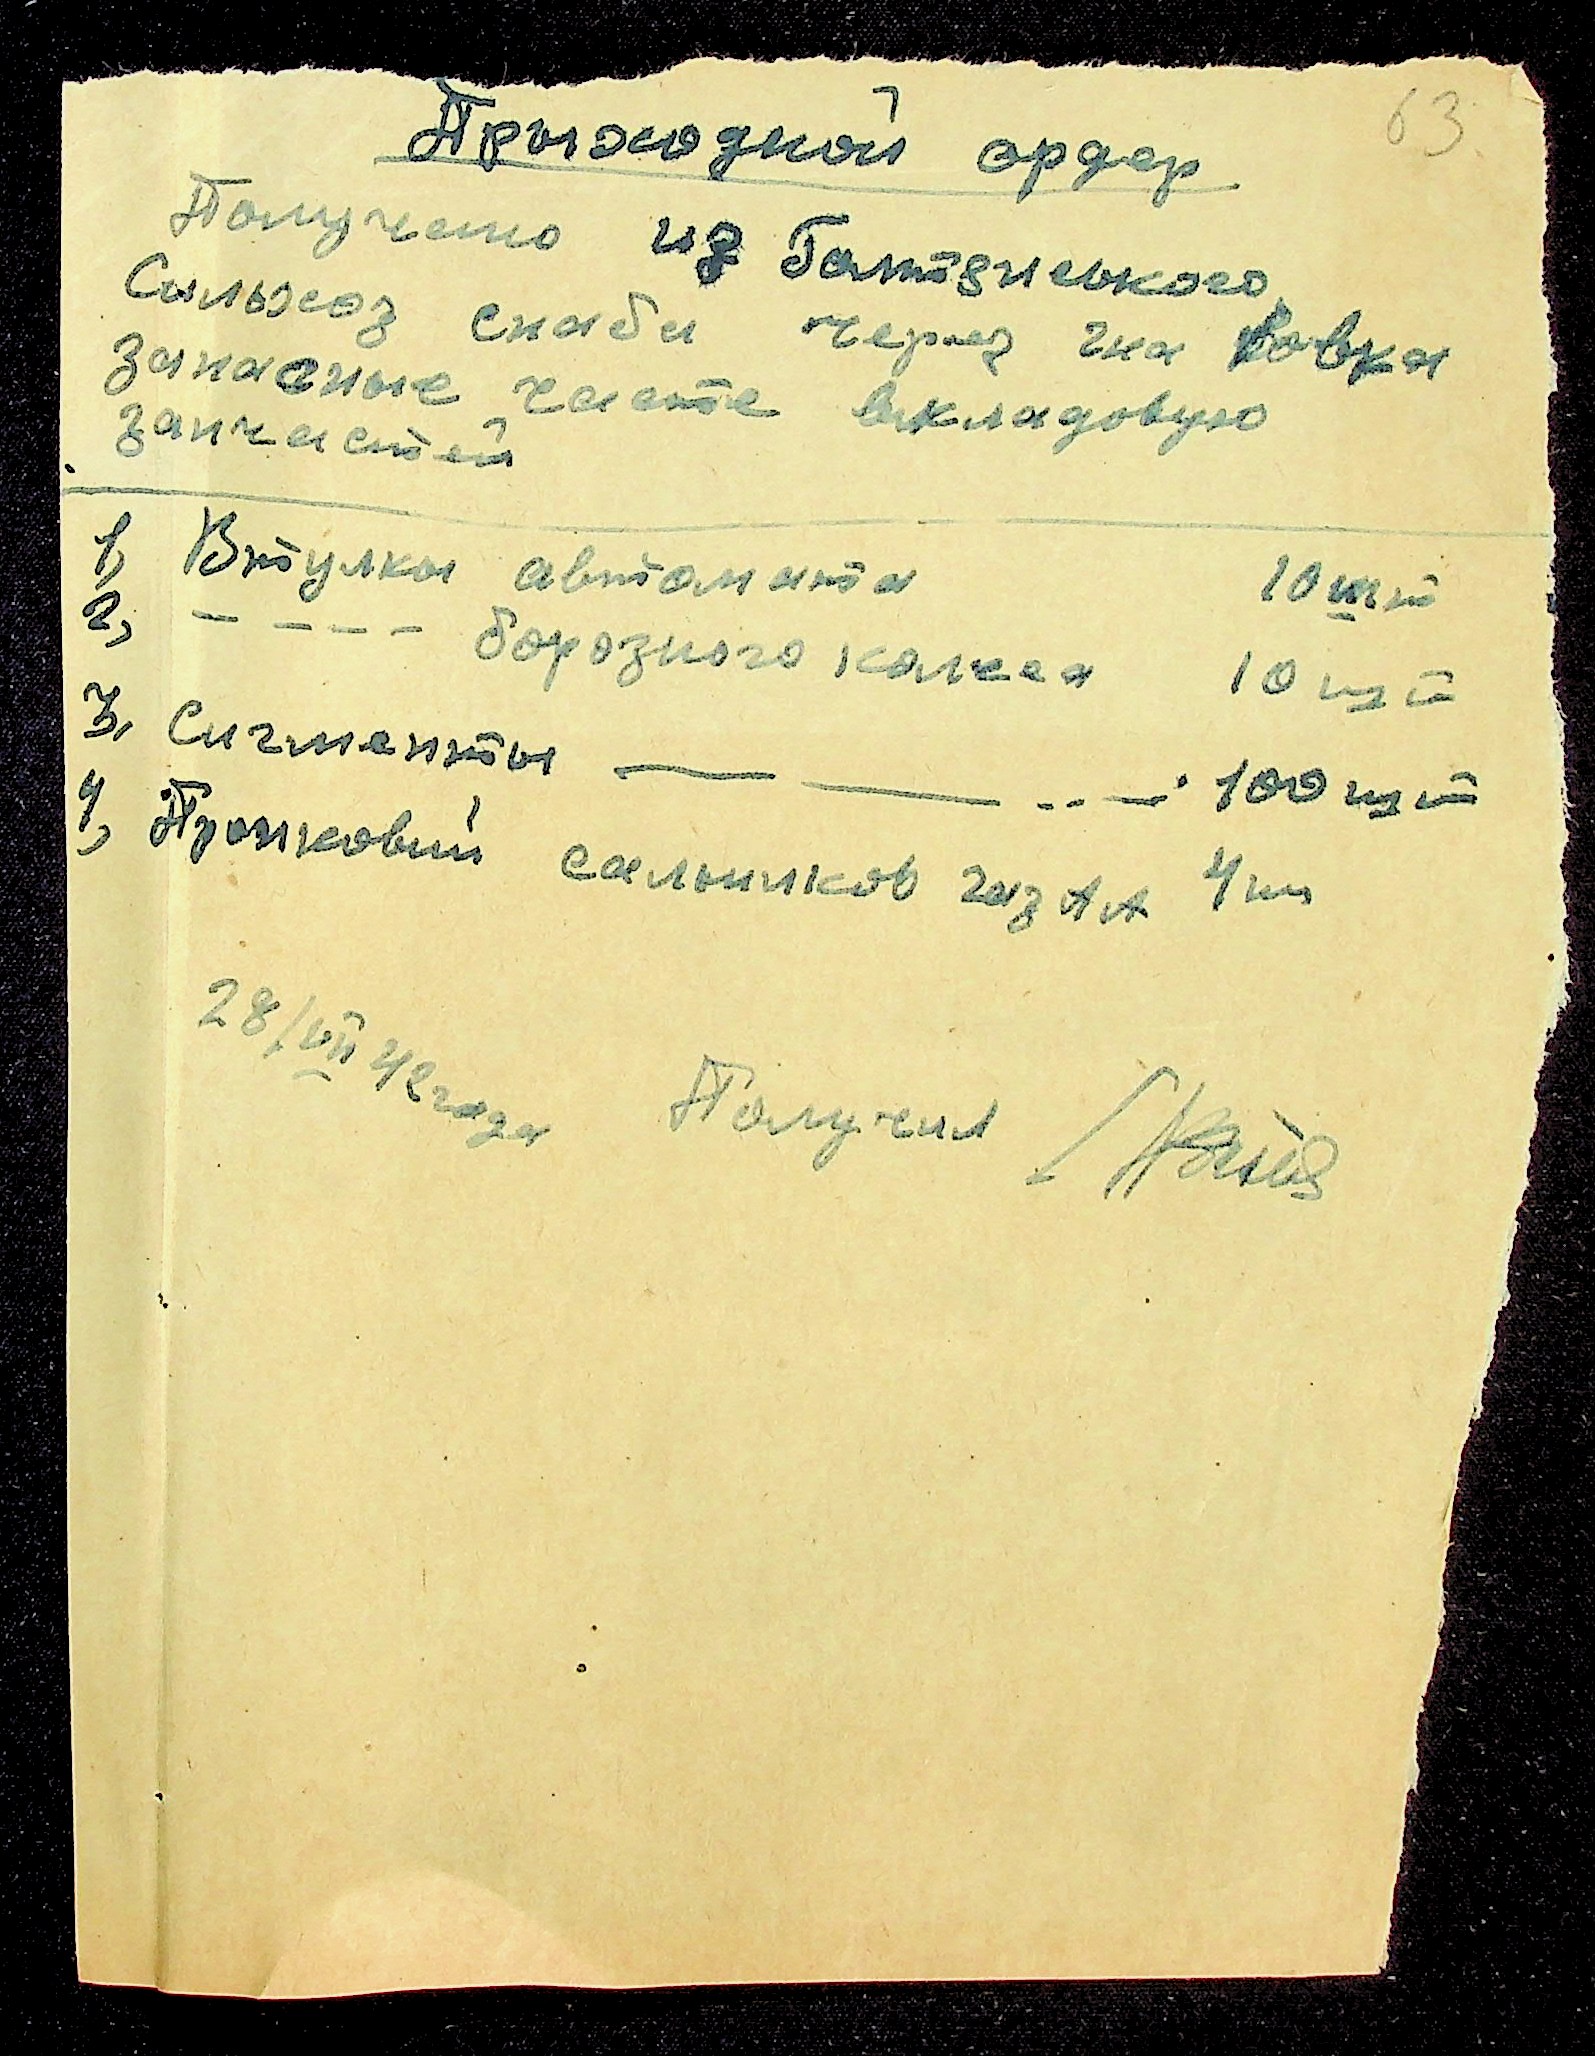 63
Прыходной ордер
Получено из
Сильхоз снаба через гна Вовка
запасные части вкладовую
запчастей
1, Втулкы автомата 10 шт
2, - - - - борозного колеса 10 шт
3, Сигменты — — - - — 100 шт
4, сальников газ АА 4 ш
28/VII 42 года Получил